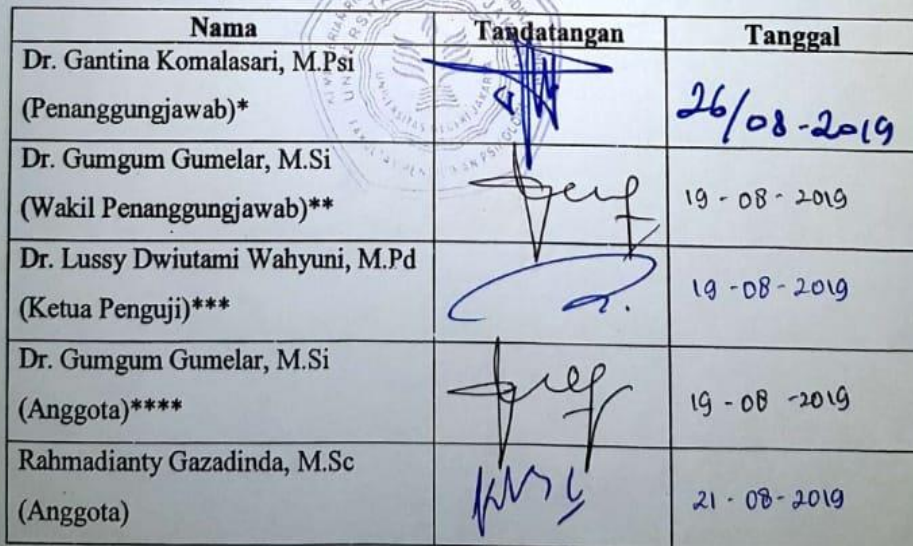 Nama Tandatangan Tanggal
Dr. Gantina Komalasari, M.Psi
(Penanggungjawab)* 26/08-2019
Dr. Gumgum Gumelar, M.Si
(Wakil Penanggungjawab)** 19-08-2019
Dr. Lussy Dwiutami Wahyuni, M.Pd
(Ketua Penguji)*** 19-08-2019
Dr. Gumgum Gumelar, M.Si
(Anggota)**** 19-08-2019
Rahmadianty Gazadinda, M.Sc
(Anggota) 21-08-2019
UNIVERSITAS NEGERI JAKARTA